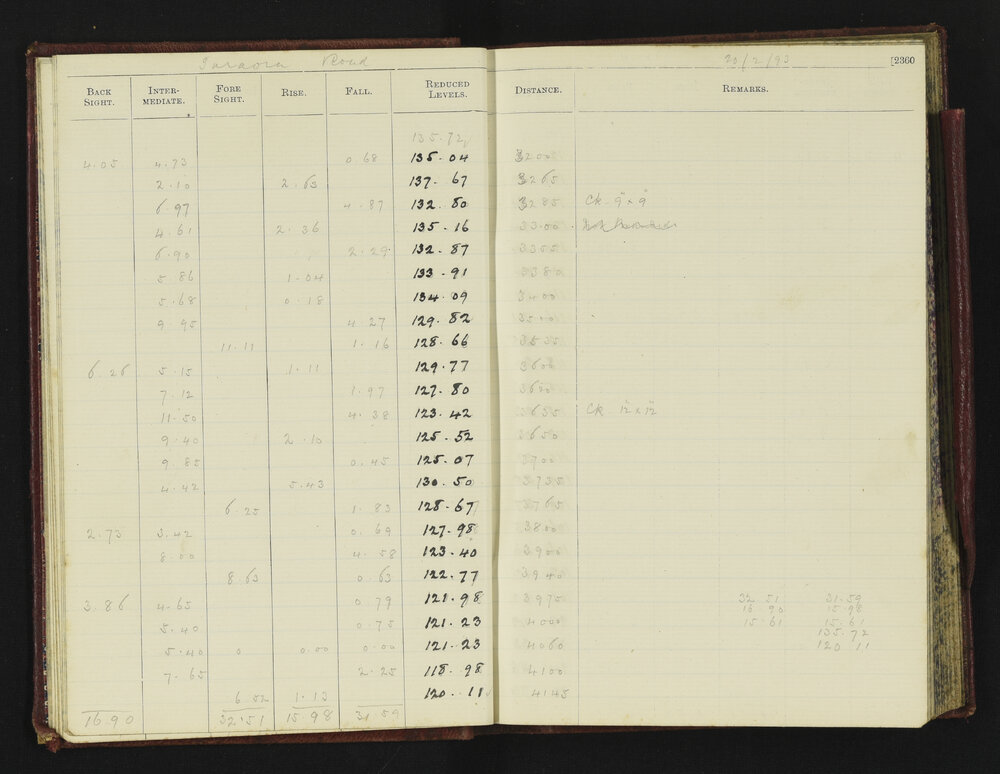 Road 20/2/93 [2360
BACK SIGHT. INTER-MEDIATE. FORE SIGHT. RISE. FALL. REDUCED LEVELS. DISTANCE. REMARKS.
135.72
4.05 4.73 0.68 135.04 3200
2.10 2.63 137.67 3265
6.97 4.87 132.80 3285 Ck 9" x 9"
4.61 2.36 135.16 3300
6.90 2.29 132.87 3355
5.86 1.04 133.91 3380
5.68 0.18 134.09 3400
9.95 4.27 129.82 3500
11.11 1.16 128.66 3535
6.26 5.15 1.11 129.77 3600
7.12 1.97 127.80
11.50 4.38 123.42 Ck 12" x 12"
9.40 2.10 125.52 3650
9.85 0.45 125.07 3700
4.42 5.43 130.50 3735
6.25 1.83 128.67 3765
2.73 3.42 0.69 127.98 3800
8.00 4.58 123.40 3900
8.63 0.63 122.77 3940
3.86 4.65 0.79 121.98 3975 32.51 31.59
16.90 15.98
5.40 0.75 121.23 4000 15.61 15.61
135.72
5.40 0 0.00 0.00 121.23 4060 120.11
7.65 2.25 118.98 4100
6.52 1.13 120.11 4145
16.90 32.51 15.98 31.59